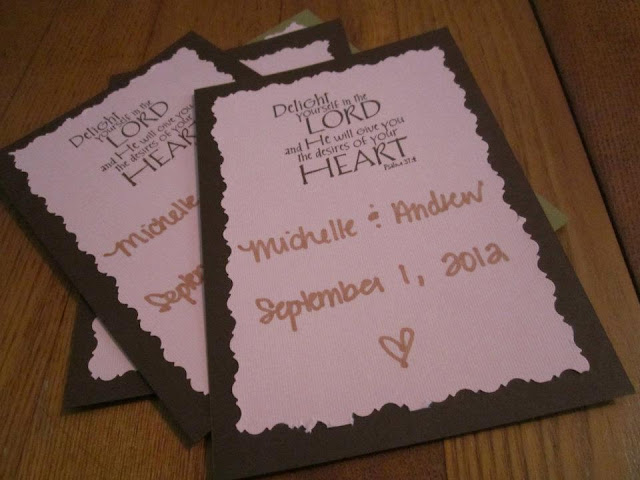 Delight
yourself in the
LORD
and He will give you
the desires of your
HEART
Psalm 37:4
Michelle & Andrew
September 1, 2012
Delight
yourself in the
LORD
and He will give you
the desires of your
HEART
Michelle
Septe